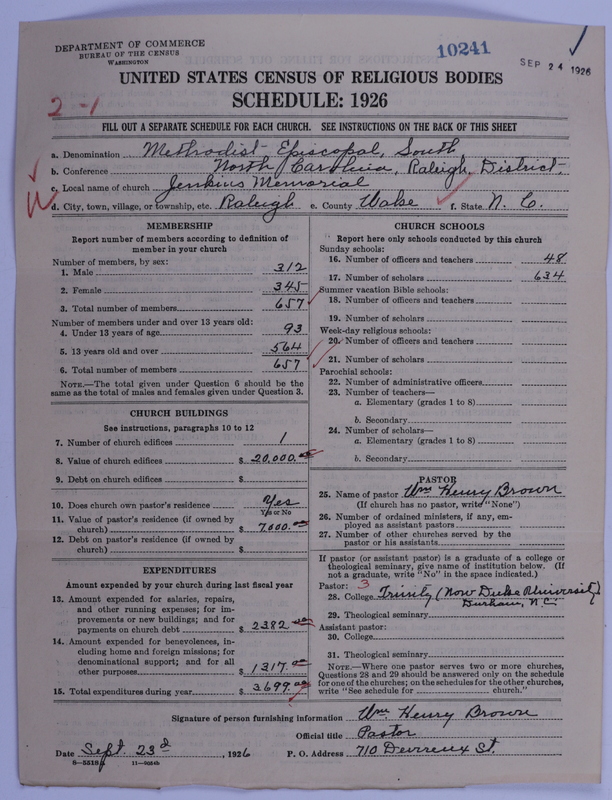 DEPARTMENT OF COMMERCE
BUREAU OF THE CENSUS
WASHINGTON
10241
SEP 24 1926
UNITED STATES CENSUS OF RELIGIOUS BODIES
SCHEDULE: 1926
2-1
FILL OUT A SEPARATE SCHEDULE FOR EACH CHURCH. SEE INSTRUCTIONS ON THE BACK OF THIS SHEET
a. Denomination Methodist Episcopal, South
b. Conference North Carolina, Raleigh, District
c. Local name of church Jenkins Memorial
d. City, town, village, or township, etc. Raleigh e. County Wake f. State N. C.
MEMBERSHIP
Report number of members according to definition of
member in your church
Number of members, by sex:
1. Male 312
2. Female 345
3. Total number of members 657
Number of members under and over 13 years old:
4. Under 13 years of age 93
5. 13 years old and over 564
6. Total number of members 657
NOTE.—The total given under Question 6 should be the
same as the total of males and females given under Question 3.
CHURCH BUILDINGS
See instructions, paragraphs 10 to 12
7. Number of church edifices 1
8. Value of church edifices $ 20,000.00
9. Debt on church edifices $
10. Does church own pastor's residence Yes
Yes or No
11. Value of pastor's residence (if owned by
church) $ 7000.00
12. Debt on pastor's residence (if owned by
church) $
EXPENDITURES
Amount expended by your church during last fiscal year
13. Amount expended for salaries, repairs,
and other running expenses; for im-
provements or new buildings; and for
payments on church debt $ 2382.00
14. Amount expended for benevolences, in-
cluding home and foreign missions; for
denominational support; and for all
other purposes $ 1317.00
15. Total expenditures during year $ 3699.00
CHURCH SCHOOLS
Report here only schools conducted by this church
Sunday schools:
16. Number of officers and teachers 48
17. Number of scholars 634
Summer vacation Bible schools:
18. Number of officers and teachers
19. Number of scholars
Week-day religious schools:
20. Number of officers and teachers
21. Number of scholars
Parochial schools:
22. Number of administrative officers
23. Number of teachers—
a. Elementary (grades 1 to 8)
b. Secondary
24. Number of scholars—
a. Elementary (grades 1 to 8)
b. Secondary
PASTOR
25. Name of pastor Wm Henry Brown
(If church has no pastor, write "None")
26. Number of ordained ministers, if any, em-
ployed as assistant pastors
27. Number of other churches served by the
pastor or his assistants
If pastor (or assistant pastor) is a graduate of a college or
theological seminary, give name of institution below. (If
not a graduate, write "No" in the space indicated.)
Pastor: 3
28. College Trinity (Now Duke University)
Durham, N.C.
29. Theological seminary
Assistant pastor:
30. College
31. Theological seminary
NOTE.—Where one pastor serves two or more churches,
Questions 28 and 29 should be answered only on the schedule
for one of the churches; on the schedules for the other churches,
write "See schedule for church."
Signature of person furnishing information Wm Henry Brown
Official title Pastor
Date Sept. 23d, 1926 P. O. Address 710 Devreux St.
8—5518